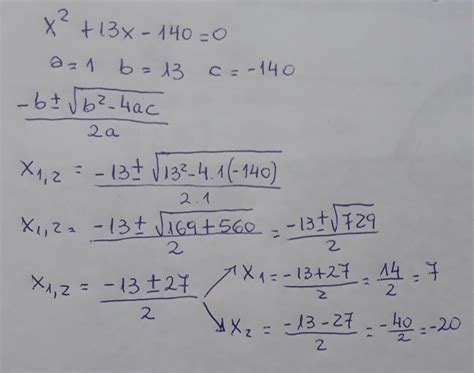 x² + 13x - 140 = 0
a = 1 b = 13 c = -140
-b ± √(b² - 4ac) / 2a
x₁,₂ = -13 ± √(13² - 4.1(-140)) / 2.1
x₁,₂ = -13 ± √(169 + 560) / 2 = -13 ± √729 / 2
x₁,₂ = -13 ± 27 / 2
x₁ = -13 + 27 / 2 = 14 / 2 = 7
x₂ = -13 - 27 / 2 = -40 / 2 = -20